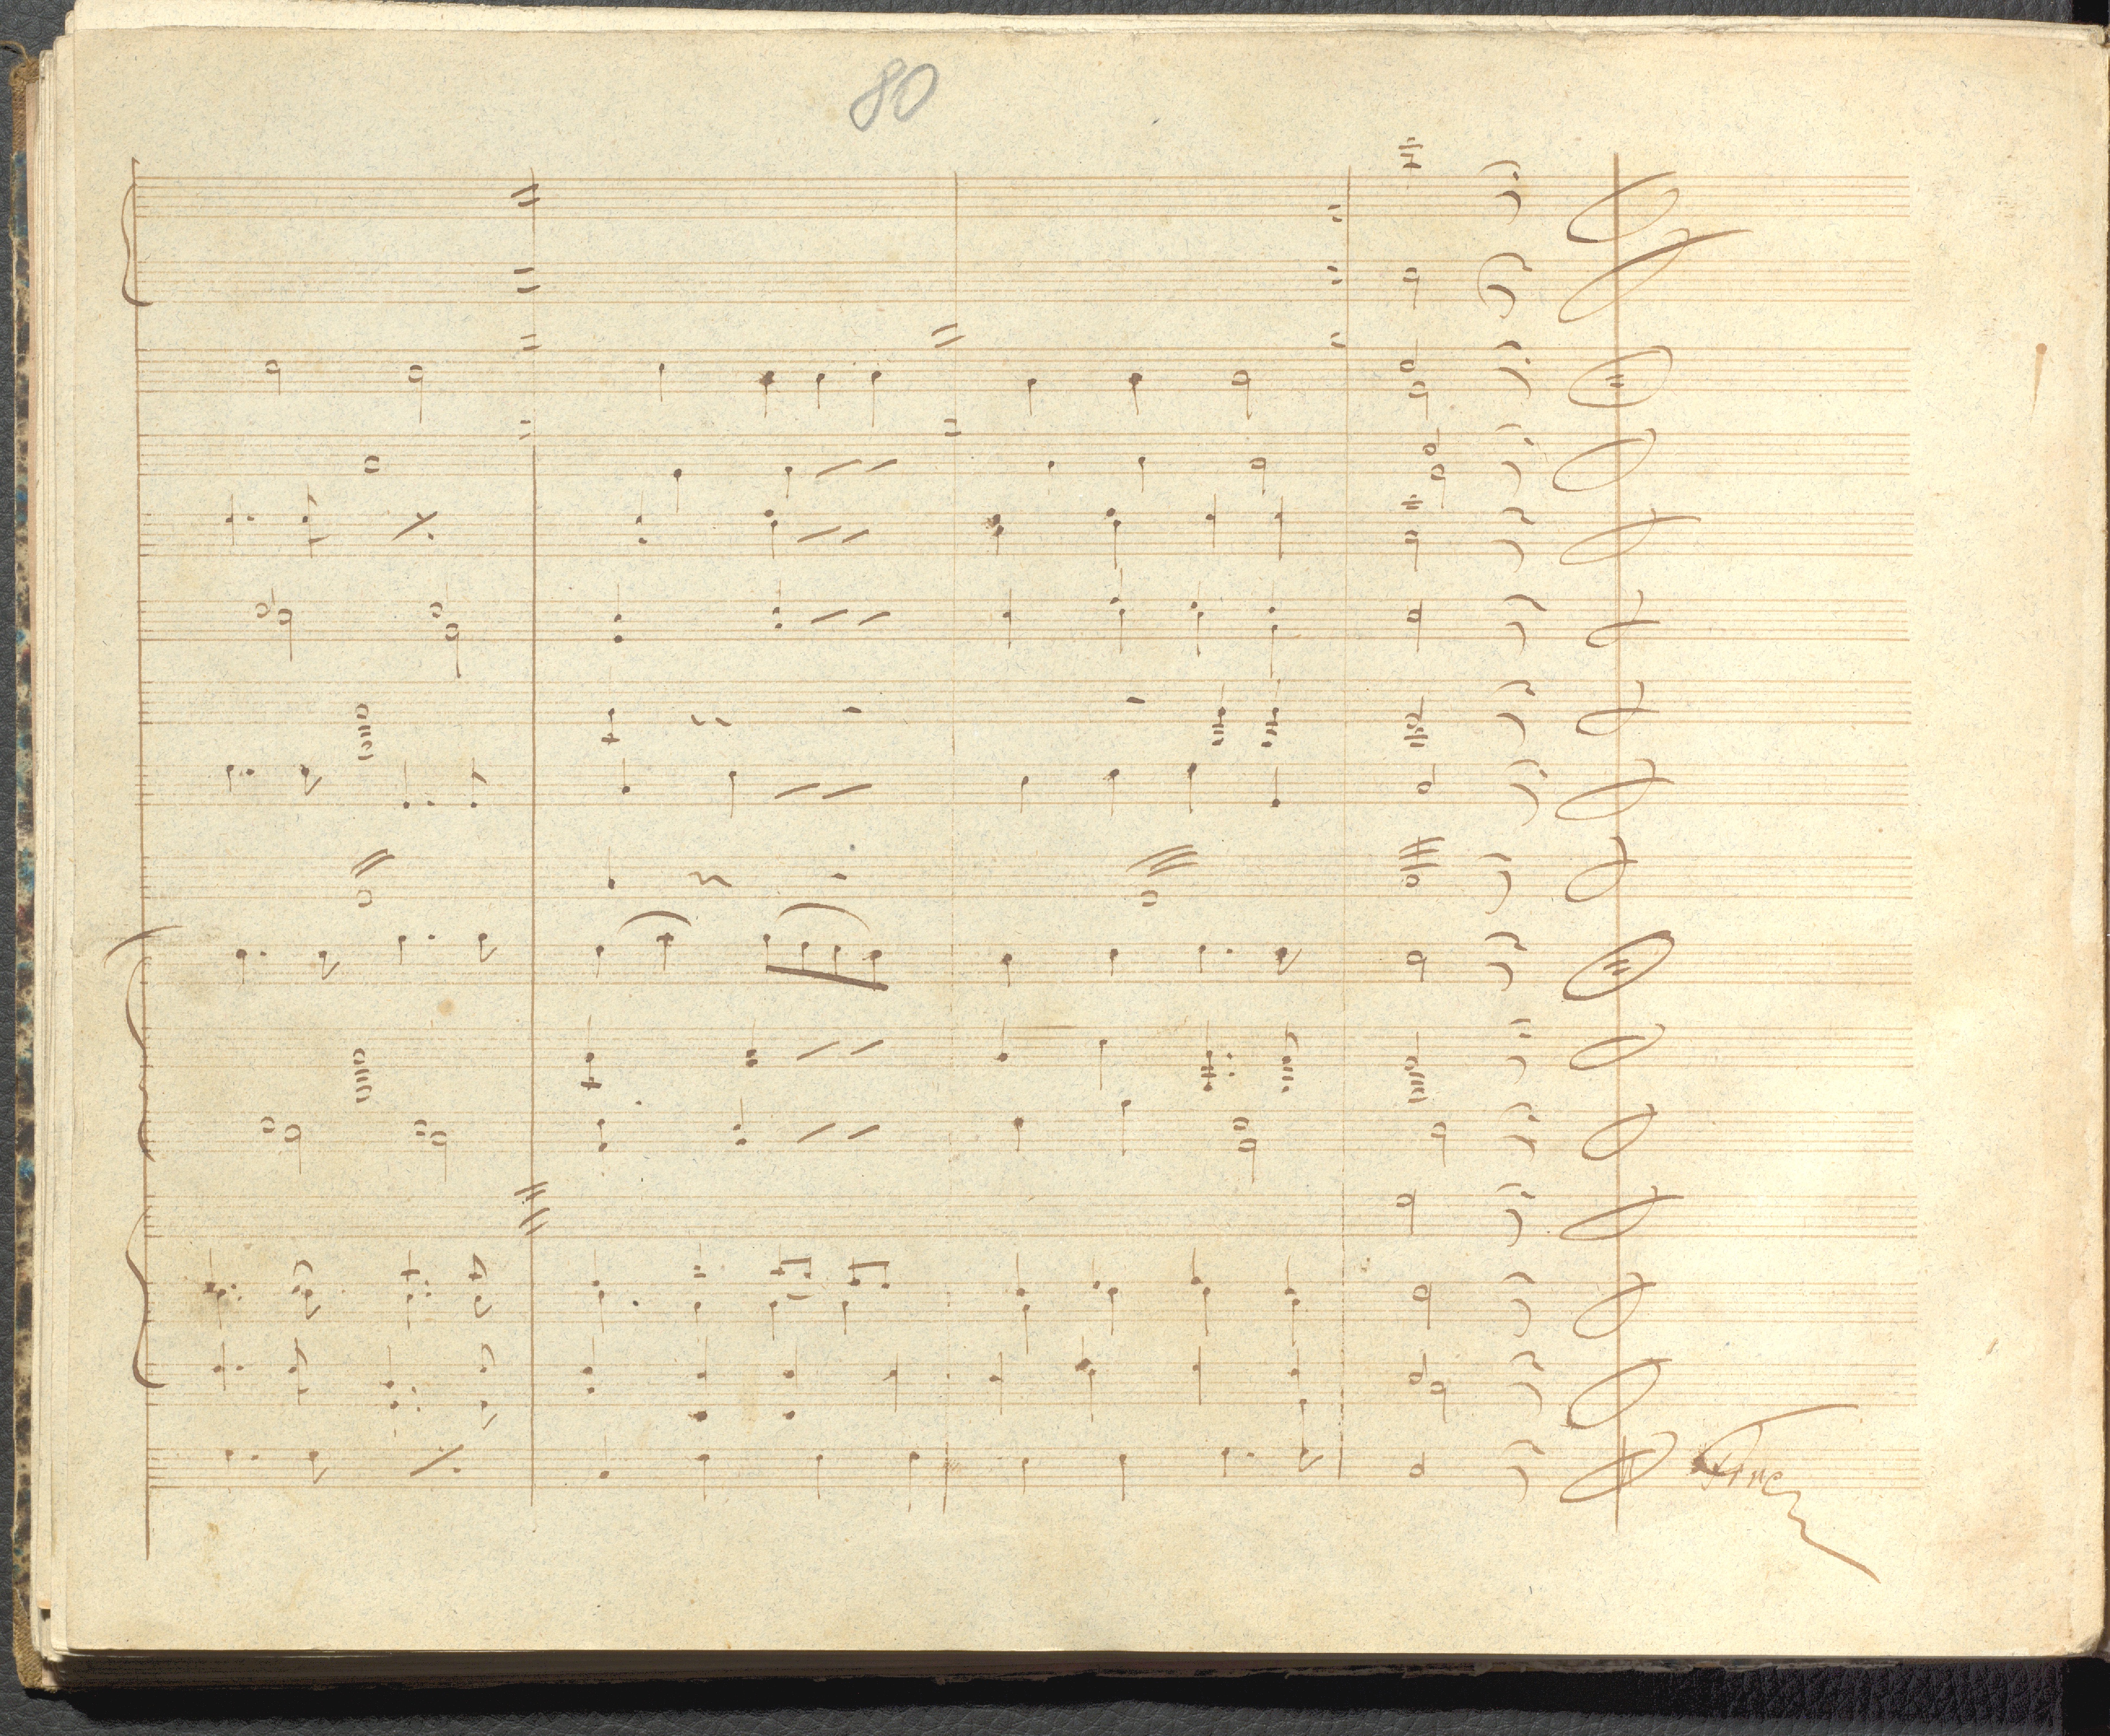 80
Fine